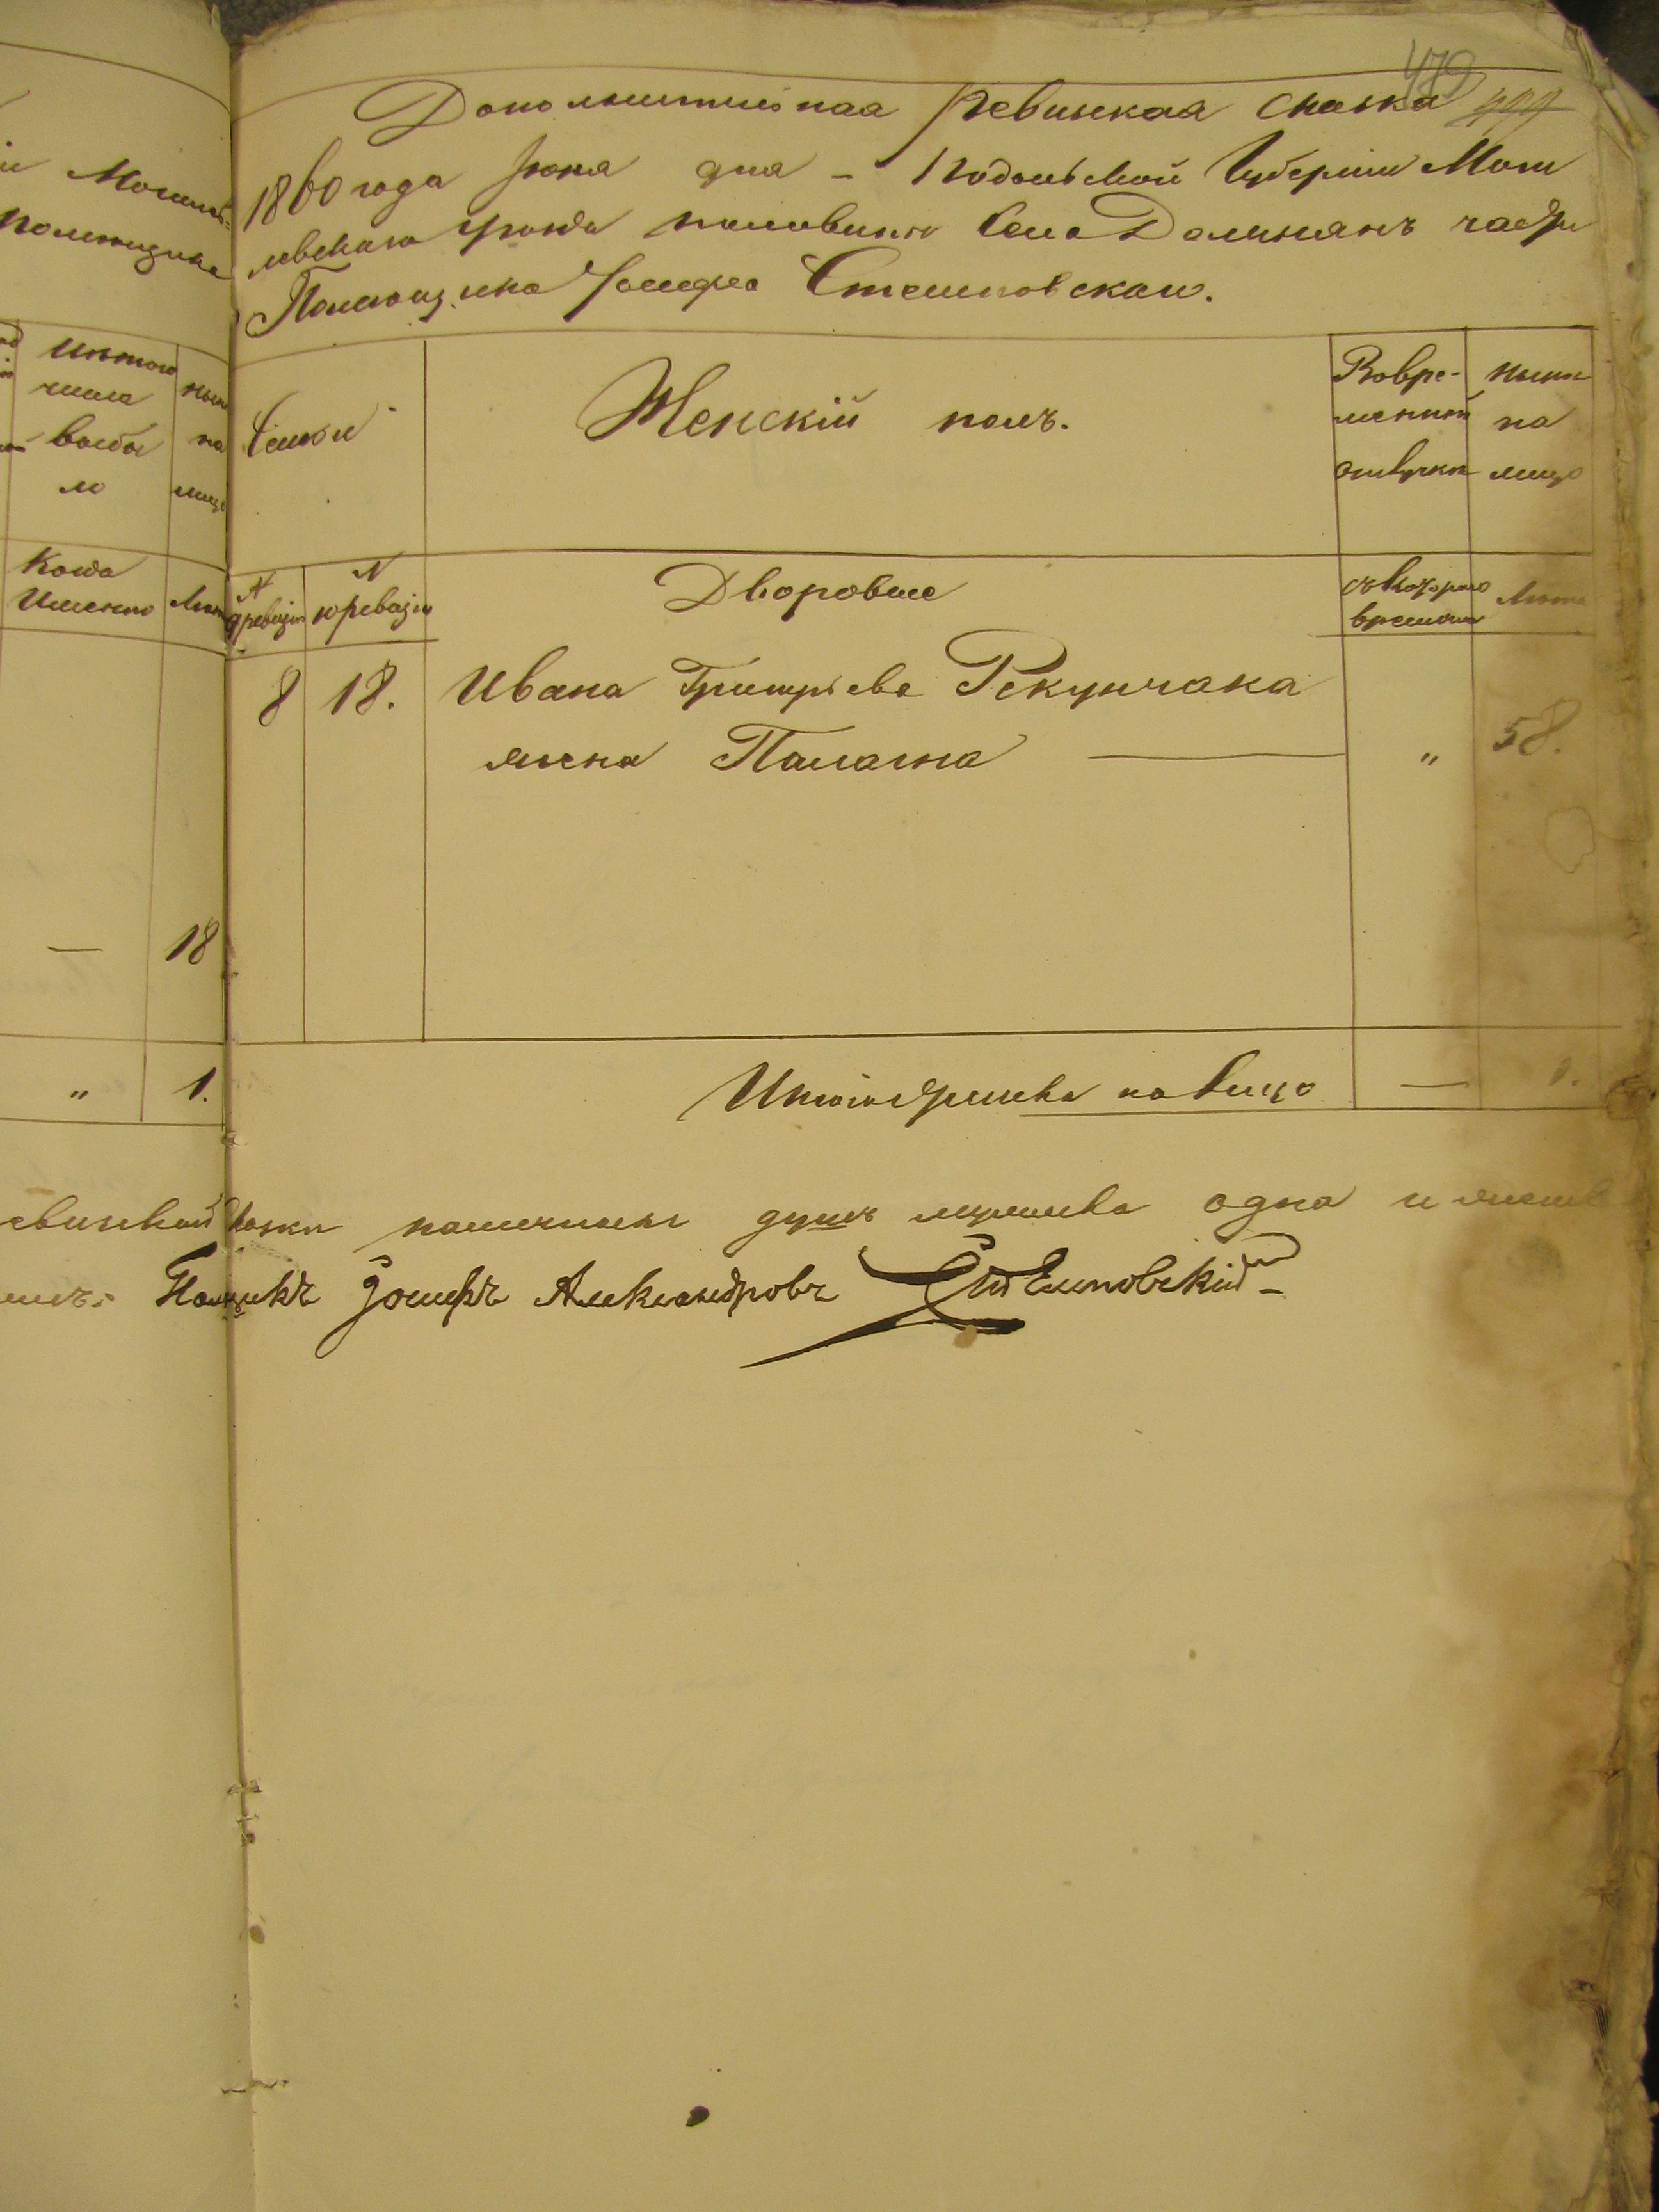 479
Дополнительная Ревизская сказка
1860 года Июня дня — Подольской Губернии Моги
левскаго уезда половины села Далжанъ части
Помещика Іосифа Стемповскаго.
и Могилев=
помещика
Изтого
числа
выбы
ло
ныне
на
лицо
Когда
Именно
Лета
—
18
"
1.
Семьи
Женскій полъ.
Вовре-
менной
отлучке
ныне
на
лицо
N
9 ревизіи
N
10 ревизіи
Дворовые
съ котораго
времени
Лета
8
18.
Ивана Григорьева Рекунчака
жена Палагна
"
58.
Итого женска на лицо
—
1.
ревизской сказки наличныхъ душъ мужеска одна и женска
Помщикъ Іосифъ Александровъ Стемповскій